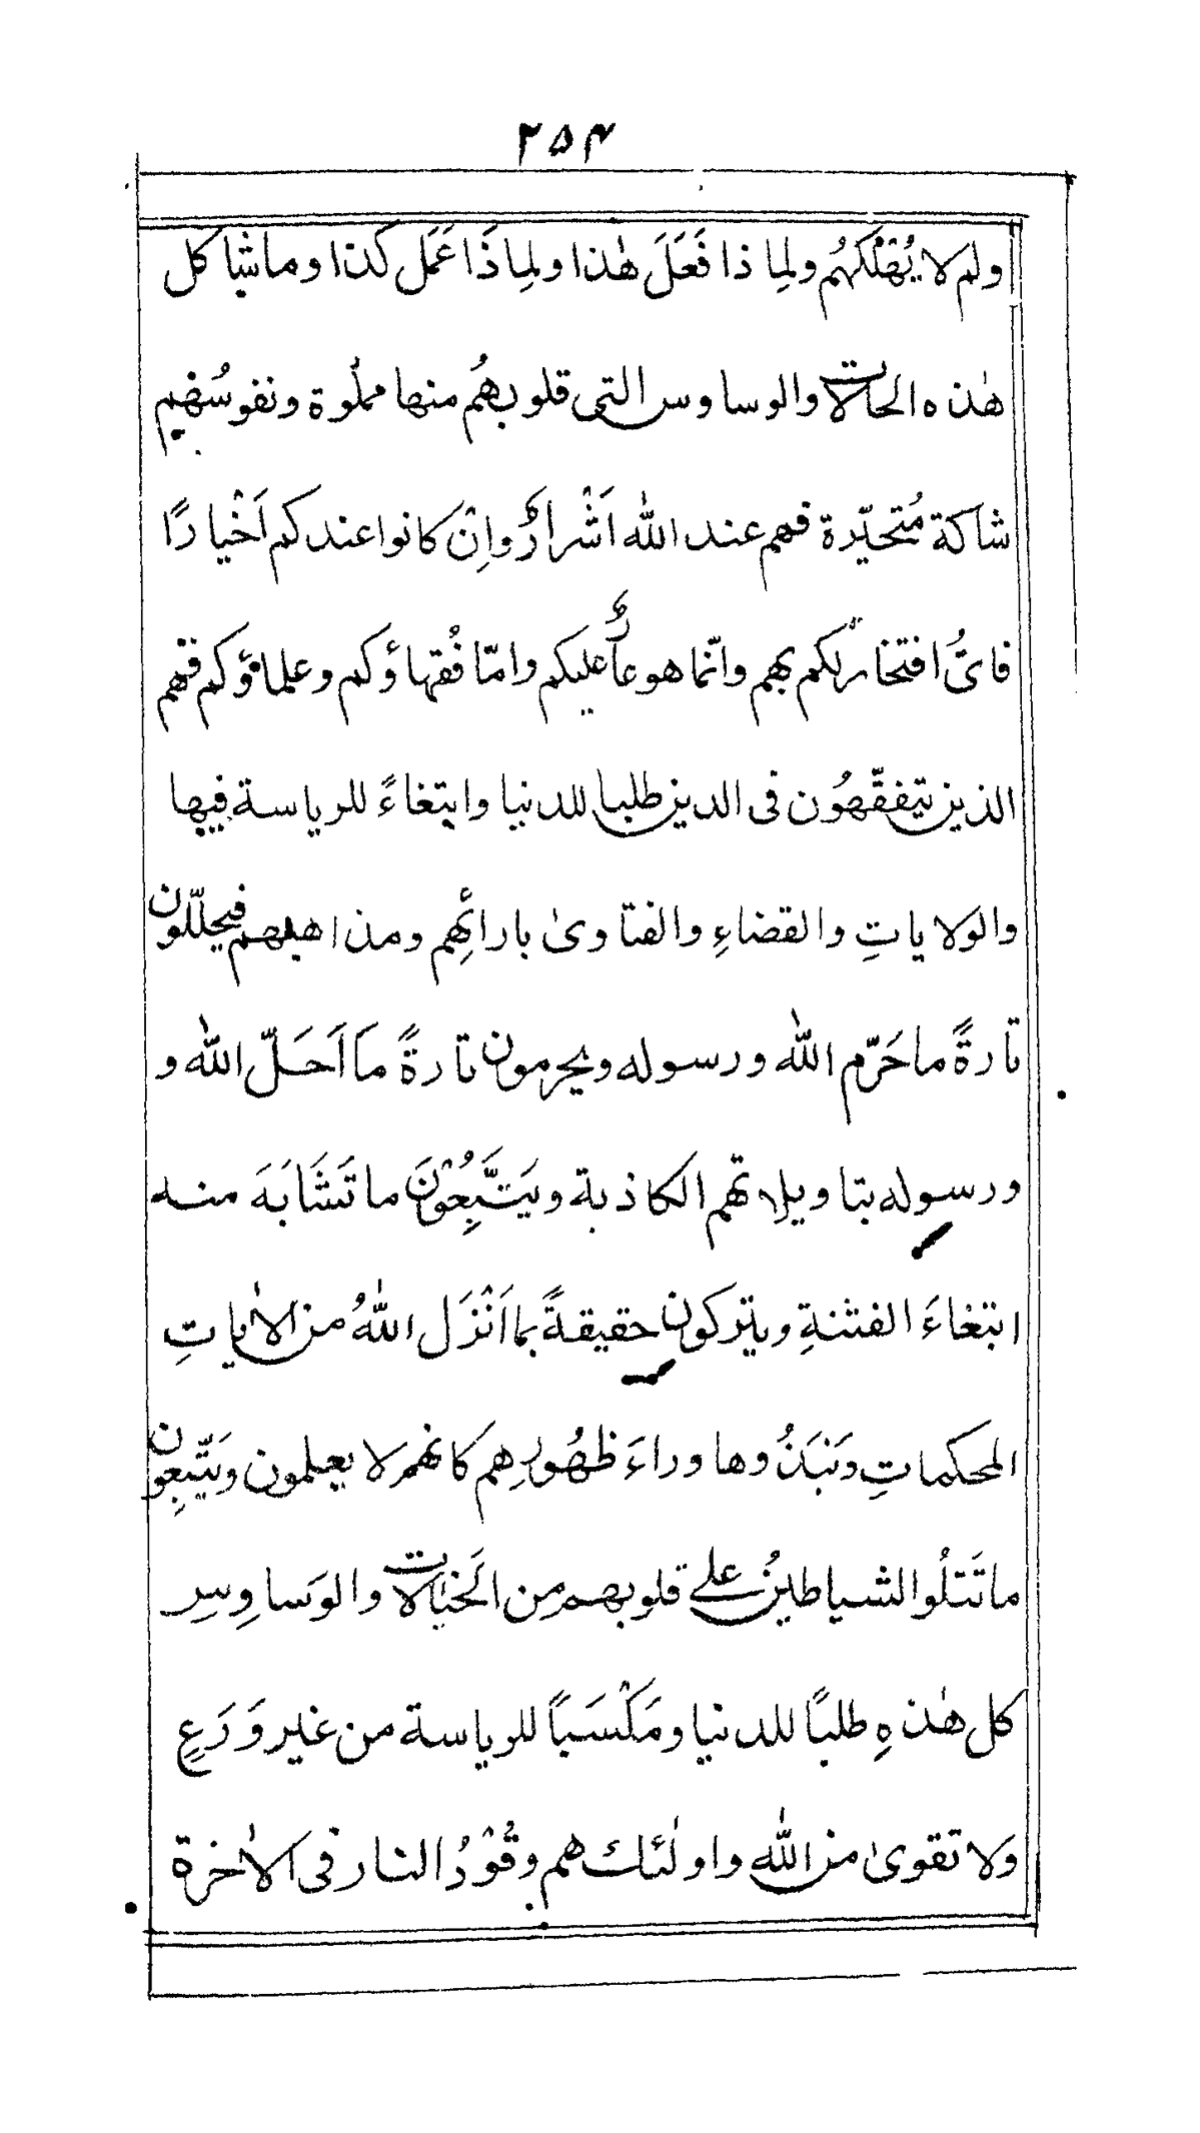 ۲۵۴
ولم لا يُهْلِكهُم ولِما ذا فَعَلَ هٰذا ولِما ذَا عَمَل كذا وما شاكل
هٰذه الحالات والوساوس التى قلوبهُم منها مملُوة ونفوسُهم
شاكة مُتحيّرة فهم عند اللّٰه اَشْرارٌ وانْ كانوا عندكم اَخْيارًا
فاىُّ افتخارٌ لكم بهم وانّما هو عارٌ عليكم وامّا فُقهاؤكم وعلماؤكم فهم
الذين يتفقّهُون فى الدين طلبا للدنيا وابتغاءً للرياسة فيها
والولاياتِ والقضاءِ والفتاوىٰ بارائِهم ومذاهبهم فيحلّلون
تارةً ما حَرّم اللّٰه ورسوله ويحرمون تارةً ما اَحَلّ اللّٰه و
ورسوله بتاويلاتهم الكاذبة ويَتَّبِعُوْنَ ما تَشَابَهَ منه
ابتغاءَ الفتنةِ ويتركون حقيقةً بما اَنْزَل اللّٰهُ من الاٰياتِ
المحكماتِ ونَبَذُوها وراءَ ظهُورِهم كانهم لا يعلمون ويَتّبِعون
ما تَتلُوا الشياطينُ على قلوبهم من الَخيالات والوَساوِسِ
كل هٰذهِ طلبًا للدنيا ومَكْسَبًا للرياسة من غير وَرَعٍ
ولا تقوىٰ من اللّٰه واولٰئك هم وقُوْدُ النار فى الاٰخرة